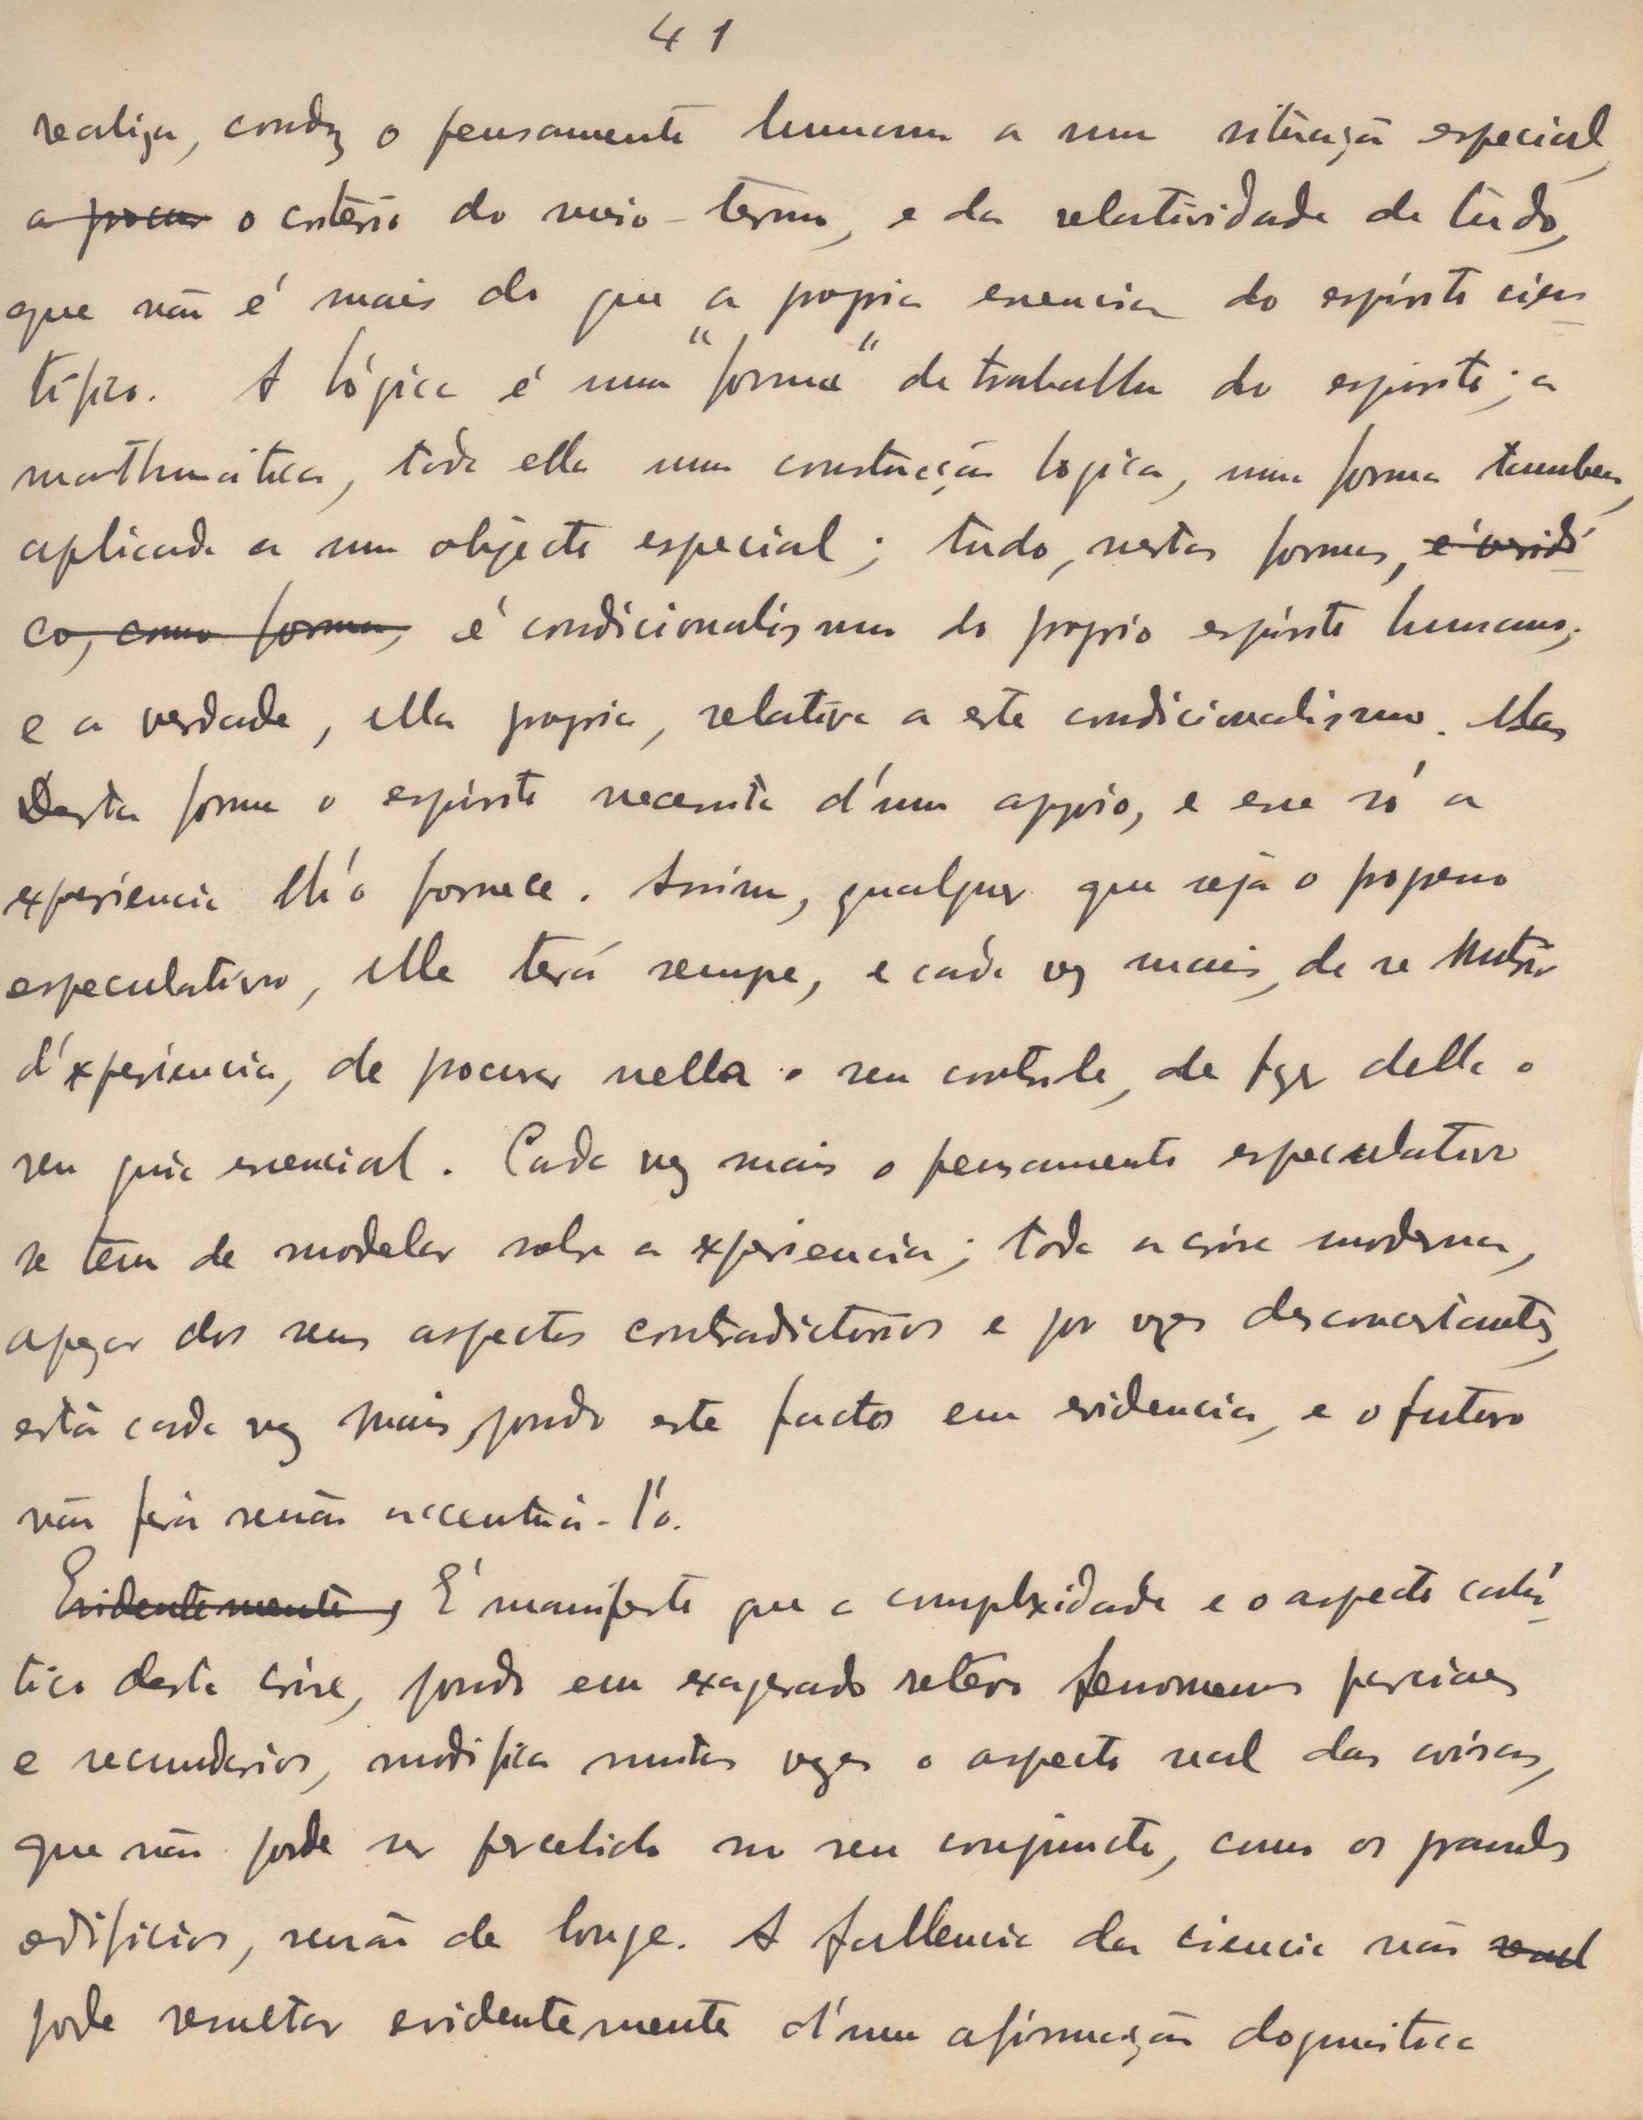 41
realiza, conduz o pensamento humano a uma situação especial,
a procur o critério do meio-termo, e da relatividade de tudo,
que não é mais do que a propria essencia do espírito cien-
tífico. A lógica é uma "forma" de trabalho do espirito; a
mathemática, toda ella uma construcção logica, uma forma tambem,
aplicada a um objecto especial; tudo, nestas formas, é verídi-
co, como forma, é condicionalismo do proprio espírito humano;
e a verdade, ella propria, relativa a este condicionalismo. Mas
Desta forma o espírito necessita d'um appoio, e esse só a
experiencia lh'o fornece. Assim, qualquer que seja o processo
especulativo, elle terá sempre, e cada vez mais, de se nutrir
d'experiencia, de procurar nella o seu controle, de fazer della o
seu guia essencial. Cada vez mais o pensamento especulativo
se tem de modelar sobre a experiencia; toda a crise moderna,
apezar dos seus aspectos contradictórios e por vezes desconcertantes,
está cada vez mais pondo este facto em evidencia, e o futuro
não fará senão accentuá-l'o.
Evidentemente, É manifesto que a complexidade e o aspecto caó-
tico desta crise, pondo em exagerado relevo fenomenos parciaes
e secundarios, modifica muitas vezes o aspecto real das coisas,
que não pode ser percebido no seu conjuncto, como os grandes
edificios, senão de longe. A fallencia da ciencia não
pode resultar evidentemente d'uma afirmação dogmática